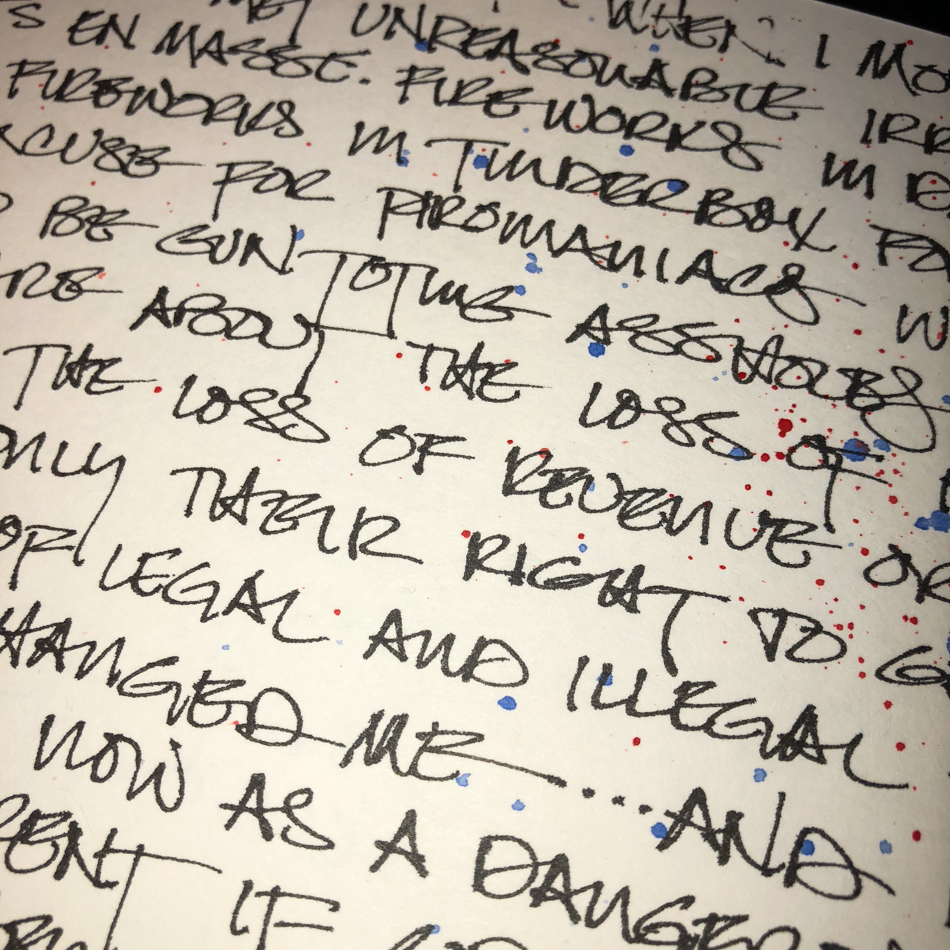 WHEN I MO
MET UNREASONABLE IRR
S EN MASSE. FIREWORKS IN D
FIREWORKS IN TINDERBOX FO
XCUSE FOR PYROMANIACS W
BE GUN TOTING ASSHOLES
RE ABOUT THE LOSS OF
THE LOSS OF REVENUE OR
ONLY THEIR RIGHT TO G
OF LEGAL AND ILLEGAL
HANGED ME ....AND
NOW AS A DANGER
ENT IF